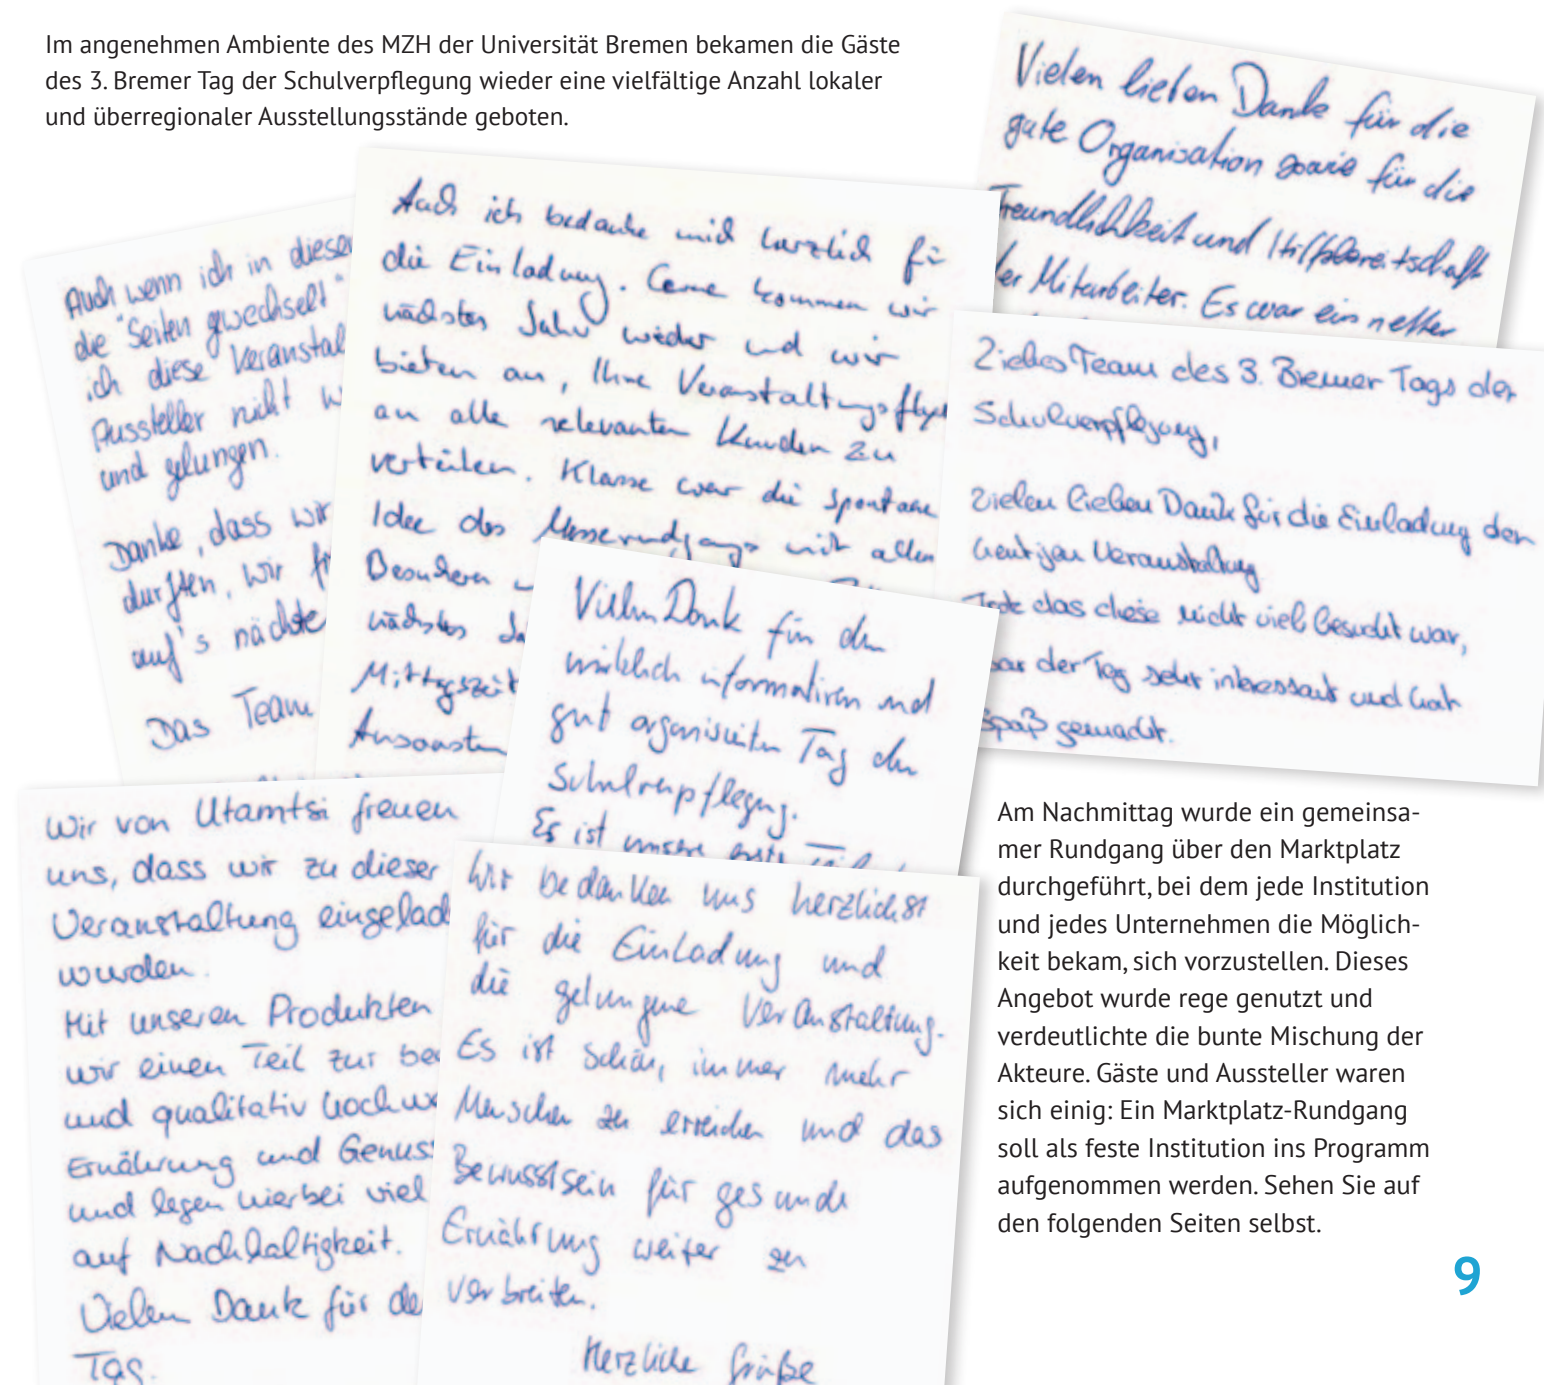 Im angenehmen Ambiente des MZH der Universität Bremen bekamen die Gäste
des 3. Bremer Tag der Schulverpflegung wieder eine vielfältige Anzahl lokaler
und überregionaler Ausstellungsstände geboten.
Vielen lieben Dank für die
gute Organisation sowie für die
Freundlichkeit und Hilfsbereitschaft
der Mitarbeiter. Es war ein netter
Auch wenn ich in dieser
die "Seiten gewechselt"
ich diese Veranstal
Aussteller nicht w
und gelungen.
Danke, dass wir
durften, wir
auf's nächste
Das Team
Auch ich bedanke mich herzlich für
die Einladung. Gerne kommen wir
nächstes Jahr wieder und wir
bieten an, Ihre Veranstaltungsflyer
an alle relevanten Kunden zu
verteilen. Klasse war die spontane
Idee des Messerundgangs mit allen
Besonderen
nächstes Ja
Mittagszeit
Ansonsten
Liebes Team des 3. Bremer Tags der
Schulverpflegung,
vielen lieben Dank für die Einladung der
heutigen Veranstaltung
Trotz das diese nicht viel besucht war,
war der Tag sehr interessant und hat
Spaß gemacht.
Vielen Dank für den
wirklich informativen und
gut organisierten Tag der
Schulverpflegung.
Es ist unsere erste
Wir von Utamtsi freuen
uns, dass wir zu dieser
Veranstaltung eingelad
wurden.
Mit unseren Produkten
wir einen Teil zur be
und qualitativ hochwe
Ernährung und Genuss
und legen hierbei viel
auf Nachhaltigkeit.
Vielen Dank für de
Tag.
Wir bedanken uns herzlichst
für die Einladung und
die gelungene Veranstaltung.
Es ist schön, immer mehr
Menschen zu erreichen und das
Bewusstsein für gesunde
Ernährung weiter zu
verbreiten.
Herzliche Grüße
Am Nachmittag wurde ein gemeinsa-
mer Rundgang über den Marktplatz
durchgeführt, bei dem jede Institution
und jedes Unternehmen die Möglich-
keit bekam, sich vorzustellen. Dieses
Angebot wurde rege genutzt und
verdeutlichte die bunte Mischung der
Akteure. Gäste und Aussteller waren
sich einig: Ein Marktplatz-Rundgang
soll als feste Institution ins Programm
aufgenommen werden. Sehen Sie auf
den folgenden Seiten selbst.
9